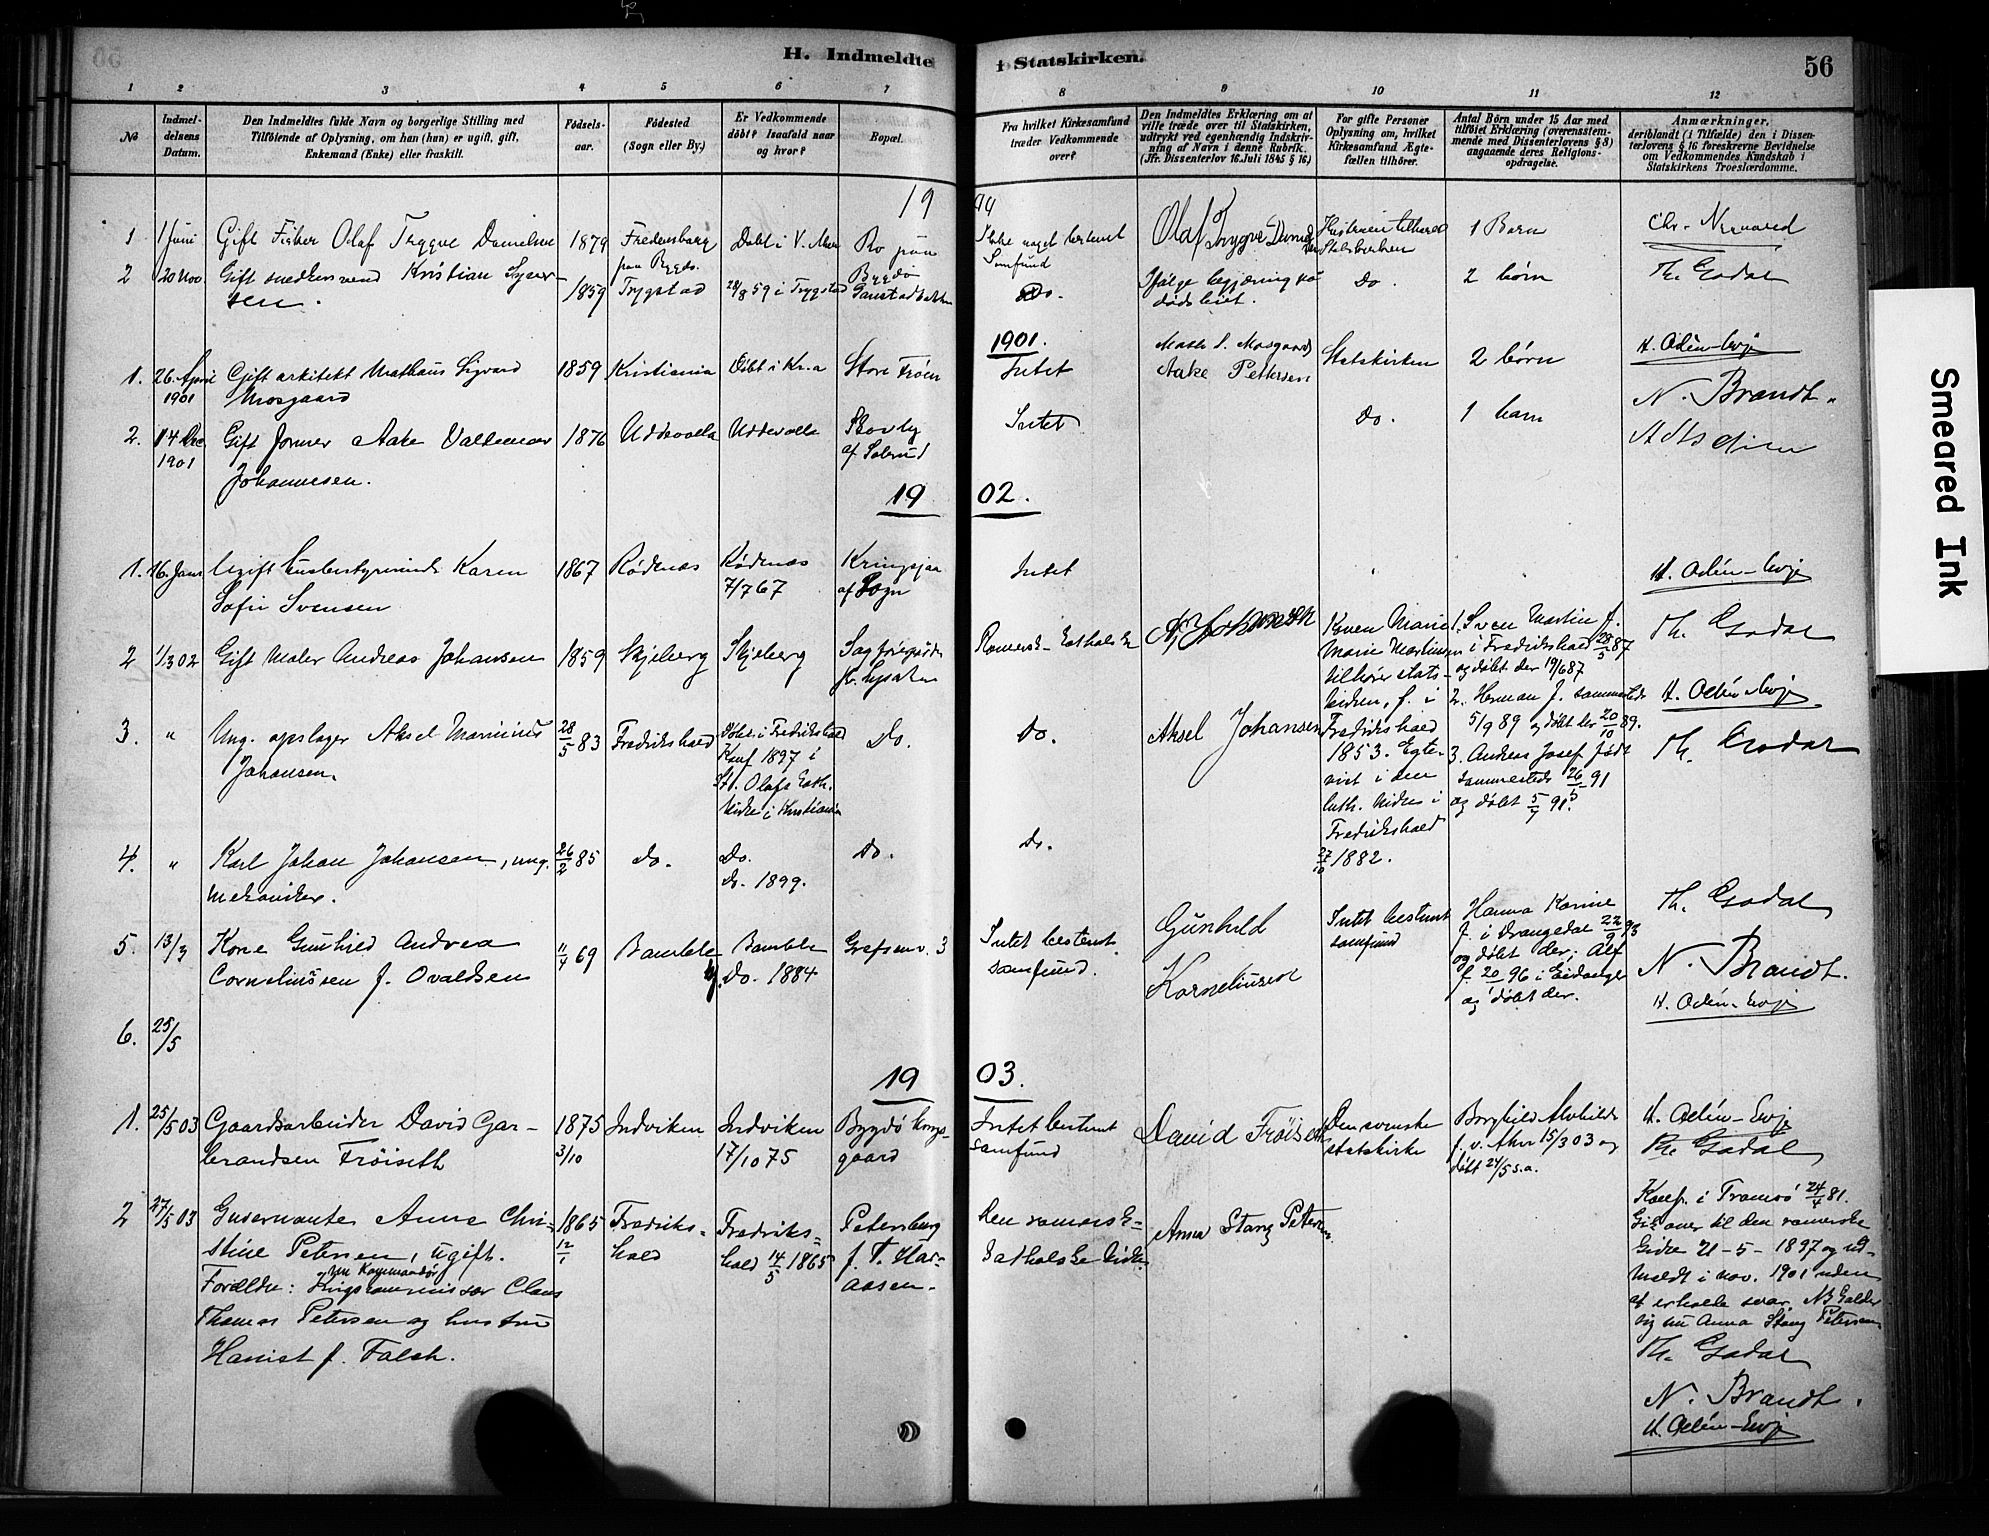 H. Indmeldte i Statskirken.
56
1 2 3 4 5 6 7 8 9 10 11 12
No
Indmel-
delsens
Datum.
Den Indmeldtes fulde Navn og borgerlige Stilling med
Tilföiende af Oplysning, om han (hun) er ugift, gift,
Enkemand (Enke) eller fraskilt.
Födsels-
aar.
Födested
(Sogn eller By.)
Er Vedkommende
döbt? Isaafald naar
og hvor?
Bopæl.
Fra hvilket Kirkesamfund
træder Vedkommende
over?
Den Indmeldtes Erklæring om at
ville træde over til Statskirken,
udtrykt ved egenhændig Indskriv-
ning af Navn i denne Rubrik.
(Jfr. Dissenterlov 16. Juli 1845 § 16.)
For gifte Personer
Oplysning om, hvilket
Kirkesamfund Ægte-
fællen tilhörer.
Antal Börn under 15 Aar med
tilföiet Erklæring (overensstem-
mende med Dissenterlovens § 8)
angaaende deres Religions-
opdragelse.
Anmærkninger,
deriblandt (i Tilfælde) den i Dissen-
terlovens § 16 foreskrevne Bevidnelse
om Vedkommendes Kundskab i
Statskirkens Troeslærdomme.
19
1 1 Juni Gift Fisker Olaf Trygve Danielsen 1879 Døbt i V. Aker
Ikke noget bestemt
Samfund
Olaf Trygve
Hustruen tilhører
Statskirken
1 Barn
Chr.
2 20 Nov. Gift snedkersvend Kristian Syver-
sen.
1859 Trygstad 28/8 59 i Trygstad
Bygdø
Do.
Ifølge begjæring på
dødsleiet.
Do.
2 børn
Th. Godal
1901.
1. 26 April
1901
Gift arkitekt Mathæus Sigvard
Mosgaard
1859 Kristiania Døbt i Kr.a Store Frøen
Intet
Aake Pettersen
Statskirken
2 børn
H. Odén-Evje
N. Brandt.
2. 14 Dec
1901
Gift former Aake Valdemar
Johannesen.
1876 Uddevalla Uddevalla
Intet
Do.
1 barn
1902.
1. 16. Jan. Ugift husbestyrerinde Karen
Sofie Svensen
1867 Rødenæs Rødenæs
7/7 67
Kringsjaa
af Sogn
Intet
H. Odén-Evje
2 1/3 02 Gift Maler Andreas Johansen 1859 Skjeberg Skjeberg
Romersk-Katholske
Johansen
Th. Godal
Marie Martinsen
tilhører stats-
kirken, f. i
Fredrikshald
1853. Egte-
viet i den
luth. kirke i
Fredrikshald
27/10 1882.
1. Sven Martin f.
i Fredrikshald 28/5 87
og døbt der 19/6 87
2. Herman f. sammesteds
5/9 89 og døbt der 20/10 89.
3. Anders Josef født
sammesteds 26/5 91
og døbt 5/7 91.
H. Odén-Evje
3. " Ung. opslager Aksel Marinius
Johansen.
28/5 83 Fredrikshald
Døbt i Fredrikshald
Konf 1897 i
St. Olafs Kath.
kirke i Kristiania
Do.
Do.
Aksel Johansen
Th. Godal
4. " Karl Johan Johansen, ung.
Mekaniker.
26/2 85 Do.
Do.
Do. 1899.
Do.
Do.
Th. Godal
5. 13/3 Kone Gunhild Andrea
Corneliussen f. Ovaldsen
11/4 69 Bamble Bamble
Do. 1884
Grefsenv. 3
Intet bestemt
samfund.
Gunhild
Korneliusen
Intet bestemt
samfund
Hanna Karine
f. i Drangedal 22/9 93
og døbt der, Alf
f. 20/1 96 i Eidanger
og døbt der.
N. Brandt.
H. Odén-Evje
6. 25/5
1903.
1. 25/5 03 Gaardsarbeider David Gar-
brandsen Frøiseth
1875
3/10
Indviken Indviken
17/10 75
Bygdø Kongs-
gaard
Intet bestemt
samfund
David Frøiseth
Den svenske
statskirke
Borghild Alvhilde
f. v. Aker 15/3 03 og
døbt 24/5 s.a.
H. Odén-Evje
Th. Godal
2 27/5 03 Guvernante Anna Chri-
stine Petersen, ugift.
Forældre: Krigskommissær Claus
Thomas Petersen og hustru
Harriet f. Falch.
1865
12/1
Fredriks-
hald
Fredriks-
hald 14/5 1865
Petersborg
f. T. Har-
aasen.
Den romersk-
katholske kirke
Anna Stang Petersen.
Konf. i Tromsø 24/4 81.
Gik over til den romerske
kirke 21-5-1897 og ud-
meldt i nov. 1901 uden
at erholde svar. NB kalder
sig nu Anna Stang Petersen.
Th. Godal
N. Brandt.
H. Odén-Evje
Smeared Ink